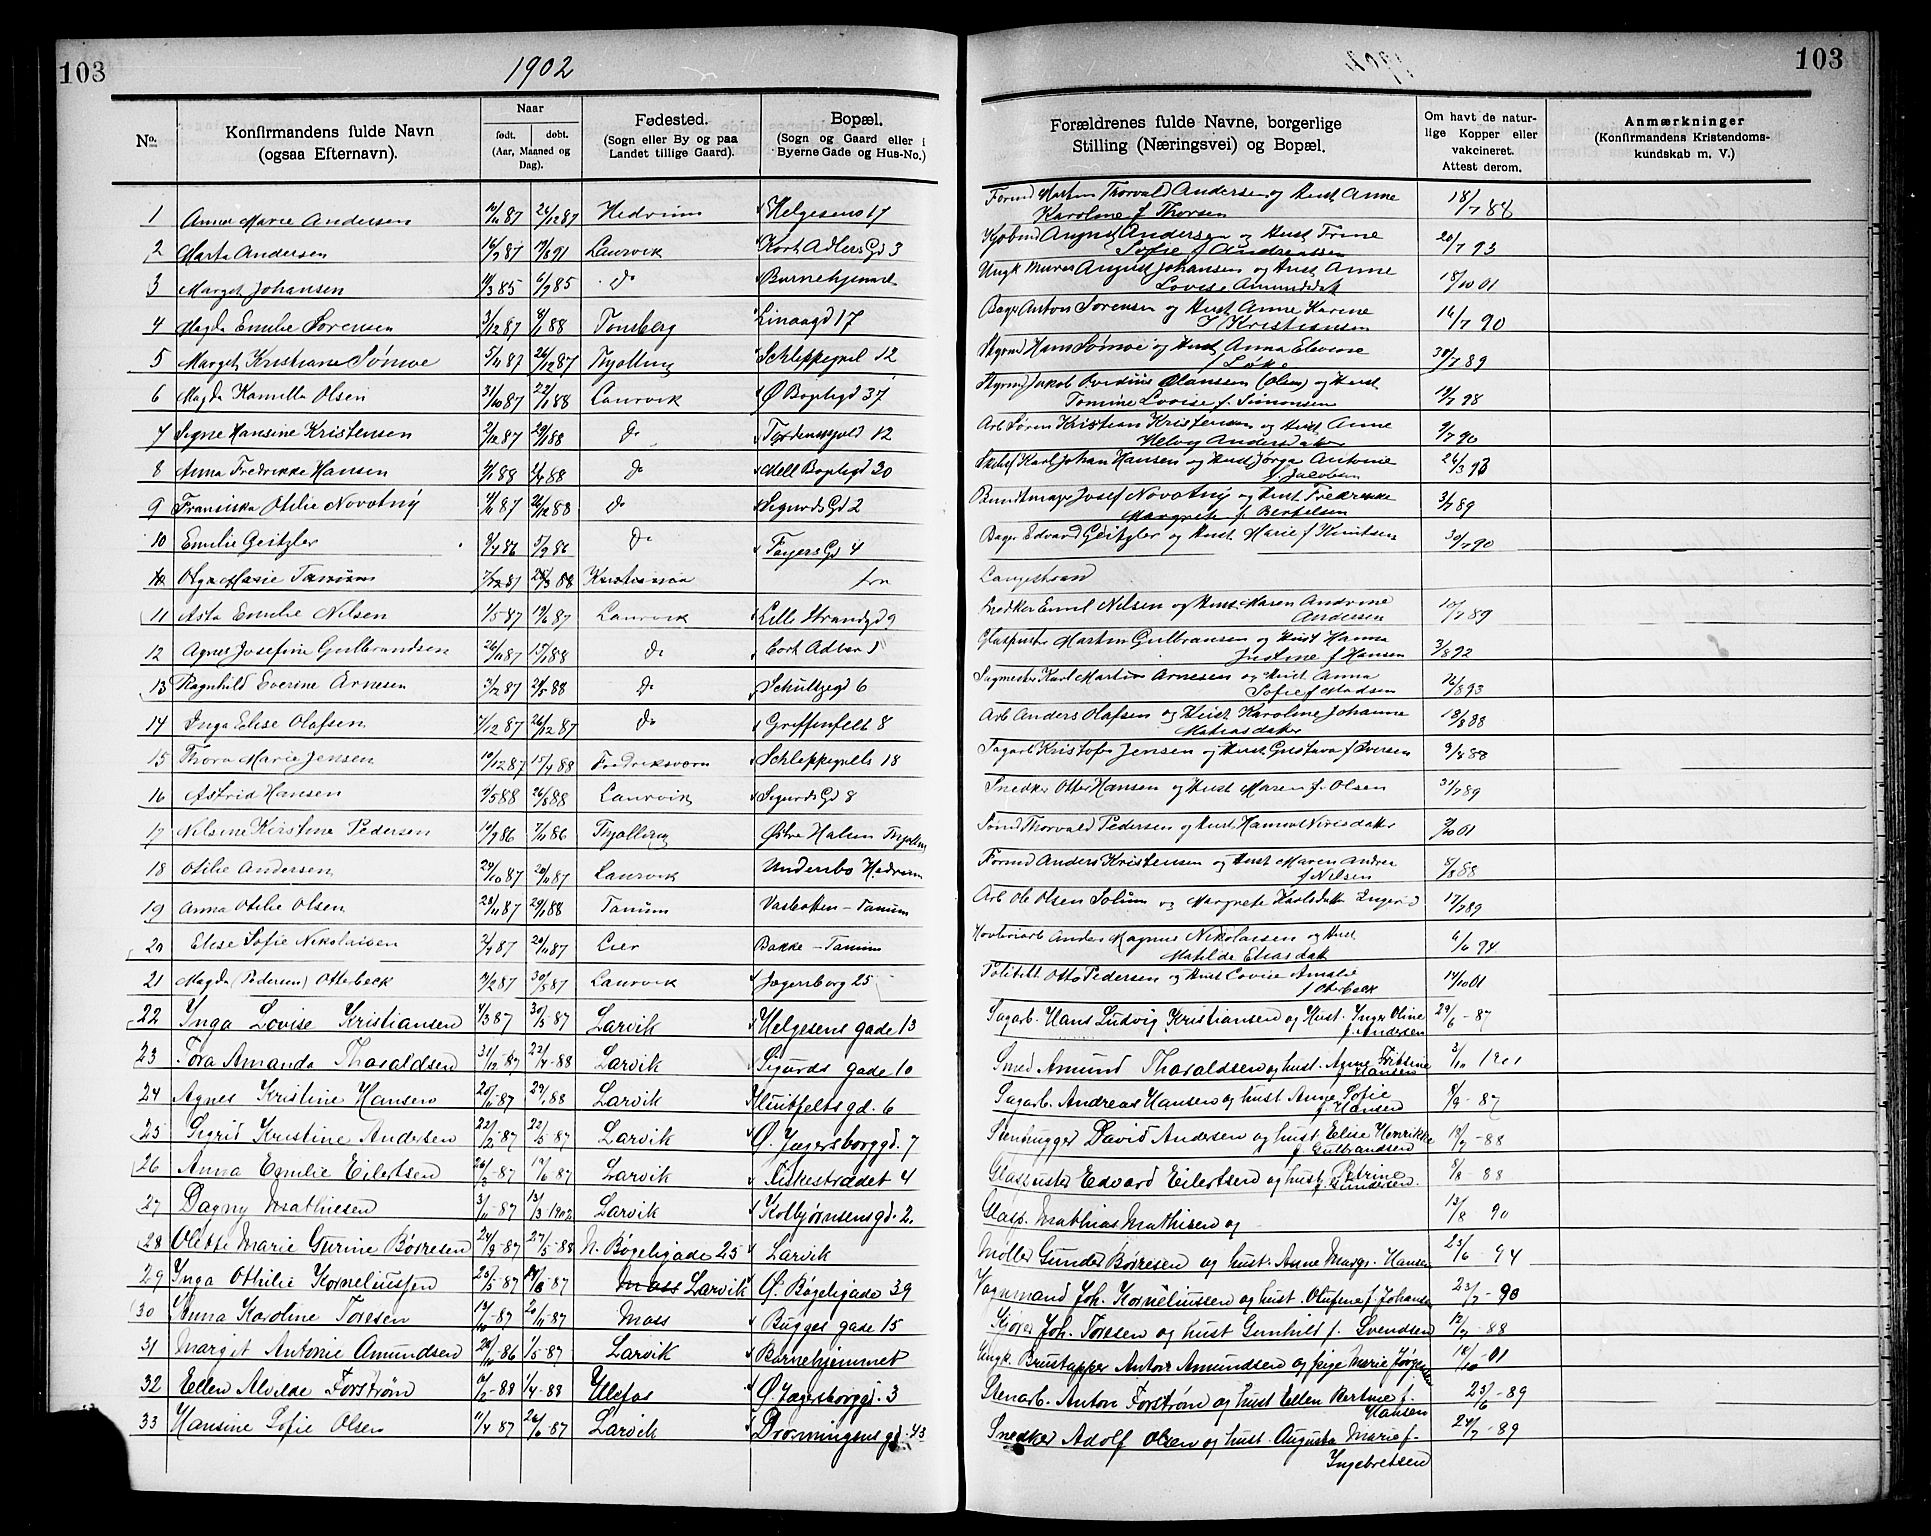 103
1902
1902
103
No.
Konfirmandens fulde Navn
(ogsaa Efternavn).
Naar
født.
døbt.
(Aar, Maaned og
Dag).
Fødested.
(Sogn eller By og paa
Landet tillige Gaard).
Bopæl.
(Sogn og Gaard eller i
Byerne Gade og Hus-No.)
Forældrenes fulde Navne, borgerlige
Stilling (Næringsvei) og Bopæl.
Om havt de natur-
lige Kopper eller
vakcineret.
Attest derom.
Anmærkninger
(Konfirmandens Kristendoms-
kundskab m. V.)
1 Anna Marie Andersen 26/12 87 Hedrum Helgesens 17 Martin Thorvald Andersen og Hust Anne 18/7 88
Karoline f Thorsen
2 Marta Andersen Laurvik Kort Adlers Gd 3 August Andersen og Hust Trine 20/7 93
Sofie f Andreassen
3 Marget Johansen 6/9 85 do Barnehjemmet Ungk Murer August Johansen og Hust Anne 18/10 01
Lovise Amundsdat
4 Magda Emilie Sorensen 3/12 87 Tonsberg Linaagd 17 Bager Anton Sorensen og Hust Anne Karine 16/7 90
f Kristiansen
5 Marget Kristiane Sömoe 5/11 87 26/12 87 Thjolling Schleppegrel 12 Styrmd Hans Sömoe og Hust Anna Elevine
f Löke
6 Magda Kamilla Olsen 31/10 87 22/1 88 Laurvik Ø Bogeligd 37 Styrmd Jakob Ovedius Olaussen (Olsen) og Hust
Tomine Lovise f. Simonsen
7 Signe Hansine Kristensen 2/12 87 29/1 88 do Tordenskjold 12 Arb Sören Kristian Kristensen og Hust Anne 9/7 90
Helvig Andersdatter
8 Anna Fredrikke Hansen do Mell Bogeligd 30 Karl Johan Hansen og Hust Jørga Antonie
f Jacobsen
9 Franciska Otilie Novotny do Sigurds Gd 2 Bundtmager Josef Novotny og Hust Fredrikke
Margrete f Bertelsen
10 Emilie Geitzler 9/4 86 5/9 86 do Fayers Gd 4 Bager Edvard Geitzler og Hust Marie f Knutsen 30/7 90
Olga Marie Tanum 7/12 87 Kristiania fra Langestrand
11 Asta Emilie Nilsen 1/5 87 19/6 87 Laurvik Lille Strandgd 9 Snedker Emil Nilsen og Hust Maren Andrine 10/7 89
Andersen
12 Agnes Josefine Gulbrandsen 26/11 87 do Cort Adler 1 Glaspuster Martin Gulbransen og Hust Hanna 3/8 92
Indine f Hansen
13 Ragnhild Everine Arnesen 3/12 87 do Schultzegd 6 Sagmester Karl Martin Arnesen og Hust Anna
Sofie f Madsen
14 Inga Elise Olafsen 26/12 87 do Griffenfelt 8 Arb Anders Olafsen og Hust Karoline Johanne 13/8 88
Matiasdatter
15 Thora Marie Jensen 10/12 87 15/4 88 Fredriksvern Schleppegrells 18 Sagarb Kristofer Jensen og Hust Gustava f Iversen 9/8 88
16 Astrid Hansen Laurvik Sigurds Gd 8 Snedker Otto Hansen og Hust Maren f. Olsen
17 Nilsine Kirstine Pedersen Thjolling Østre Halsen Thjolling Sömd Thorvald Pedersen og Hust
18 Otilie Andersen 20/11 87 Laurvik Undersbo Hedrum Formd Anders Kristensen og Hust Maren Andrea 8/8 88
f Nilsen
19 Anna Otilie Olsen 29/1 88 Tanum Vasbotten - Tanum Arb Ole Olsen Solum og Margrete Karlsdatter Ingerid 17/7 89
20 Elise Sofie Nikolaisen 20/11 87 Lier Bakke - Tanum Anders Magnus Nikolaisen og Hust 6/6 94
Matilde Eliasdatt
21 Magda (Pedersen) Otterbeck Laurvik Jegersborg 25 Politibt Otto Pedersen og Hust Lovise Amalie 14/10 01
f Otterbeck
22 Inga Lovise Kristiansen 4/3 87 30/5-87 Larvik Helgesens gade 13 Sagarb. Hans Ludvig Kristiansen og Hust. Inger Oline 29/6-87
f. Andersen
23 Tora Amanda Tharaldsen 31/12-87 22/4-88 Larvik Sigurds gade 10 Smed Amund Tharaldsen og hust. Anne Fritsine 3/10 1901
f. Hansen
24 Agnes Kristine Hansen 29/1 88 Larvik Huitfeltsgd. 6 Sagarb. Andreas Hansen og hust Anne Sofie 8/9-87
f. Hansen
25 Sigrid Kristine Andersen 22/2-87 22/5-87 Larvik Ø. Jegersborggd. 7 Stenhugger David Andersen og hust Elise Henrikke 19/7-88
f. Gulbrandsen
26 Anna Emilie Eilertsen 26/3-87 19/6-87 Larvik Fiskestrædet 4 Glaspuster Edvard Eilertsen og hust Petrine 8/8-88
f. Gundersen.
27 Dagny Mathiesen 3/11-87 13/3 1902 Larvik Kolbjørnsensgd. 2. Glasp. Mathias Mathisen og 13/8-90
28 Olette Marie Gurine Børresen 27/5-88 N. Bøgeligade 25 Larvik Møller Gunder Børresen og hust. Anne Margr. Hansen 23/6 94
29 Inga Othilie Korneliussen 25/5-87 Moss Larvik Ø. Bøgeligade 39 Vognmand Joh. Korneliussen og hust. Olufine f. Johansen 23/7-90
30 Anna Karoline Toresen 20/11-87 Moss Bugges gade 15 Kjører Joh. Toresen og hust Gunhild f. Svendsen 12/7-88
31 Margit Antonie Amundsen 1/5-87 Larvik Barnehjemmet Ungk. Brustapper Anton Amundsen og pige Marie Jørgensen 18/10 01
32 Ellen Alvilde Forstrøm 1/4-88 Ulefos Ø Jegersborggd. 3 Stenarb. Anton Forstrøm og hust Ellen Bertine f. 23/6-89
Hansen
33 Hansine Sofie Olsen 11/4 87 26/6-87 Larvik Dronningensgd. 43 Snedker Adolf Olsen og hust. Augusta Marie f. 24/7-89
Ingebretsen